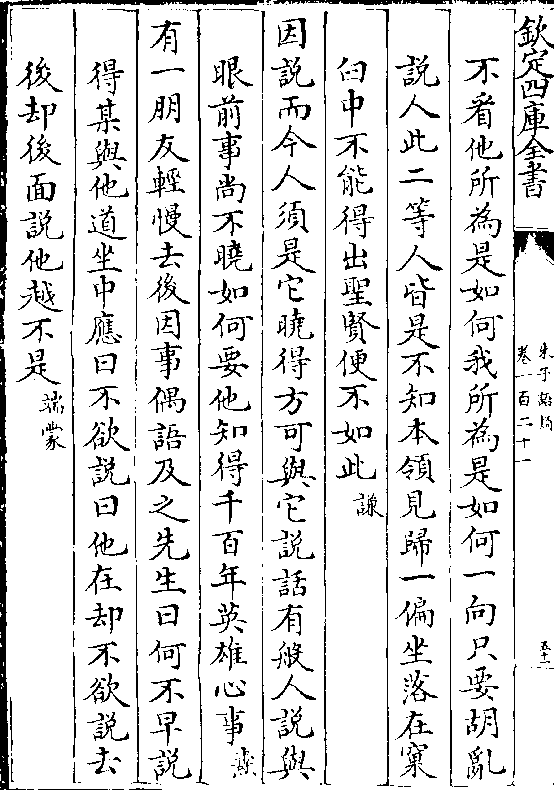 欽定四庫全書
朱子語類
卷一百二十一
五十一
不看他所為是如何我所為是如何一向只要胡亂
說人此二等人皆是不知本領見歸一偏坐落在窠
臼中不能得出聖賢便不如此謙
因説而今人須是它曉得方可與它説話有般人説與
眼前事尚不曉如何要他知得千百年英雄心事燾
有一朋友輕慢去後因事偶語及之先生曰何不早説
得某與他道坐中應曰不欲説曰他在却不欲説去
後却後面説他越不是端蒙